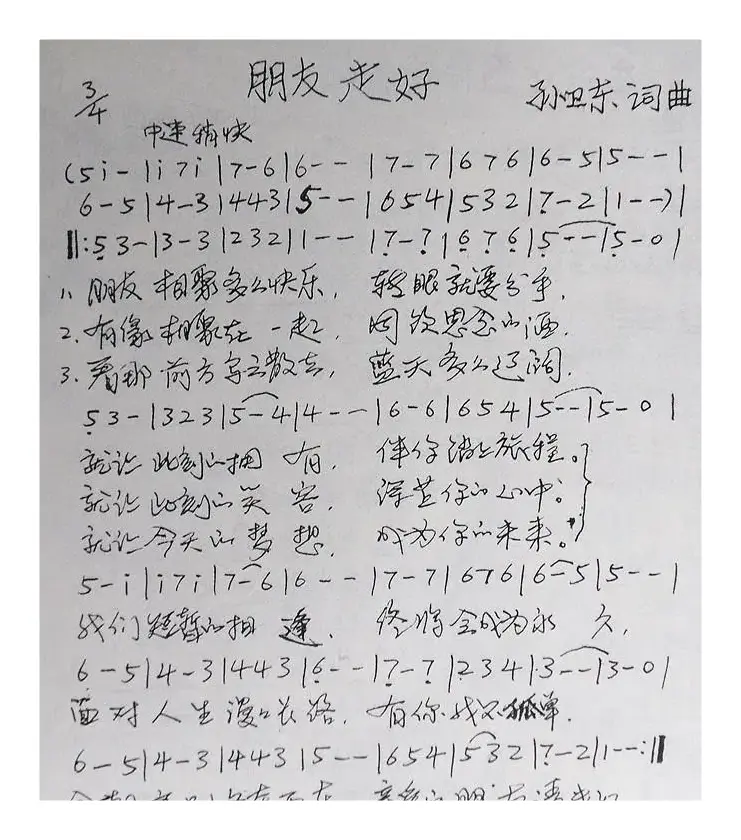 朋友走好
3/4
孙卫东 词曲
中速稍快
(5 i - | i 7 i | 7 - 6 | 6 - - | 7 - 7 | 6 7 6 | 6 - 5 | 5 - - |
6 - 5 | 4 - 3 | 4 4 3 | 5 - - | 6 5 4 | 5 3 2 | 7̣ - 2 | 1 - -) |
‖: 5̣ 3 - | 3 - 3 | 2 3 2 | 1 - - | 7̣ - 7̣ | 6̣ 7̣ 6̣ | 5̣ - - | 5̣ - 0 |
1、朋友相聚多么快乐, 转眼就要分手,
2、有缘相聚在一起, 同饮思念的酒,
3、看那前方乌云散去, 蓝天多么辽阔,
5̣ 3 - | 3 2 3 | 5 - 4 | 4 - - | 6 - 6 | 6 5 4 | 5 - - | 5 - 0 |
就让此刻的拥有, 伴你踏上旅程。
就让此刻的笑容, 深芷你的心中;
就让今天的梦想, 成为你的未来。
5 - i | i 7 i | 7 - 6 | 6 - - | 7 - 7 | 6 7 6 | 6 - 5 | 5 - - |
我们短暂的相逢, 终将会成为永久,
6 - 5 | 4 - 3 | 4 4 3 | 6̣ - - | 7̣ - 7̣ | 2 3 4 | 3 - - | 3 - 0 |
面对人生漫漫长路, 有你我不孤单.
6 - 5 | 4 - 3 | 4 4 3 | 5 - - | 6 5 4 | 5 3 2 | 7̣ - 2 | 1 - - :‖